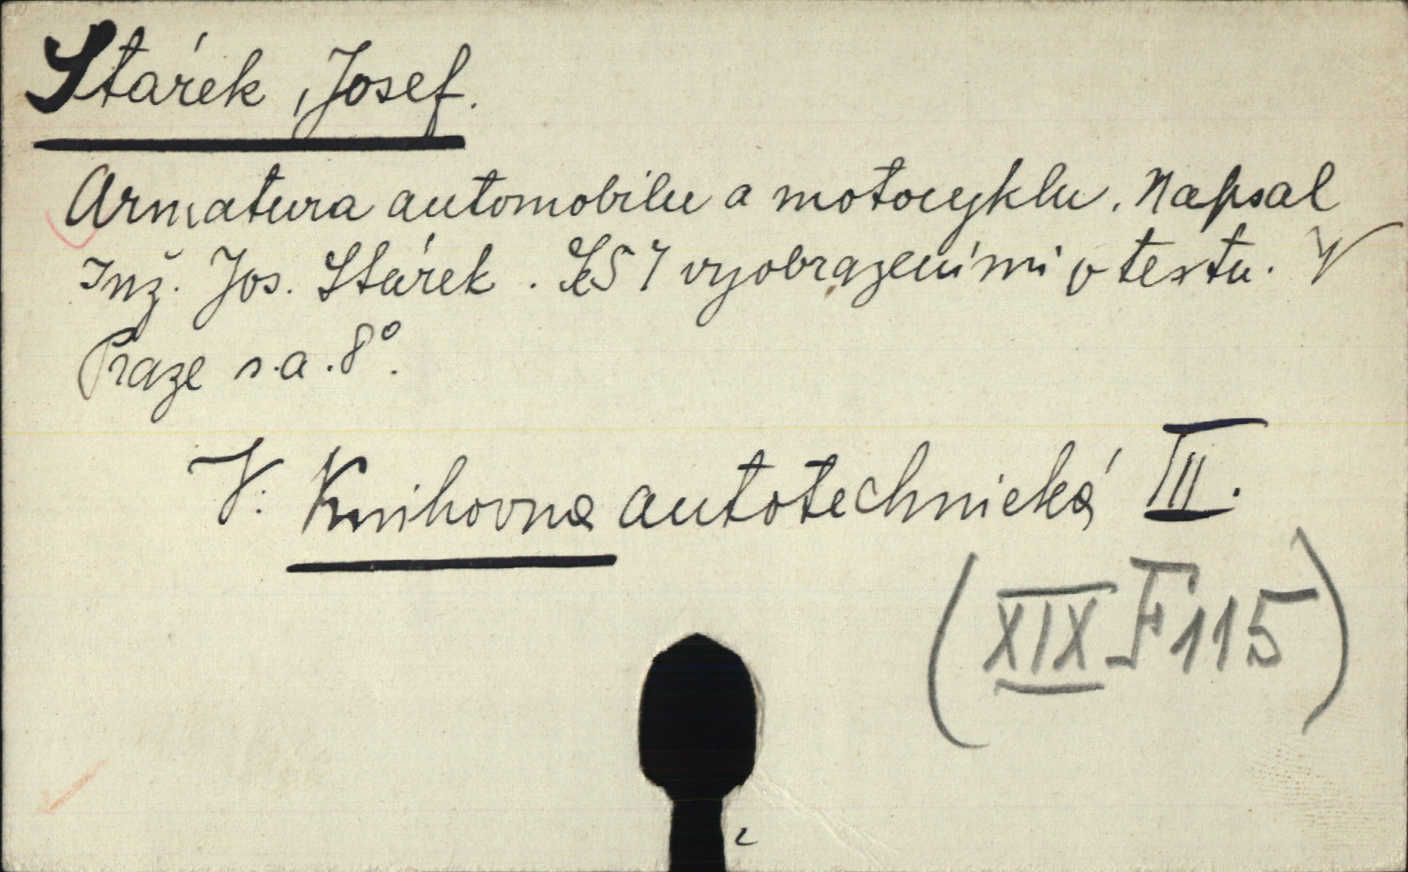 Stárek, Josef.
Armatura automobilu a motocyklu. Napsal
Inž. Jos. Stárek. Se 57 vyobrazeními v textu. V
Praze s.a. 8°.
V: Knihovna autotechnická III.
(XIX F 115)